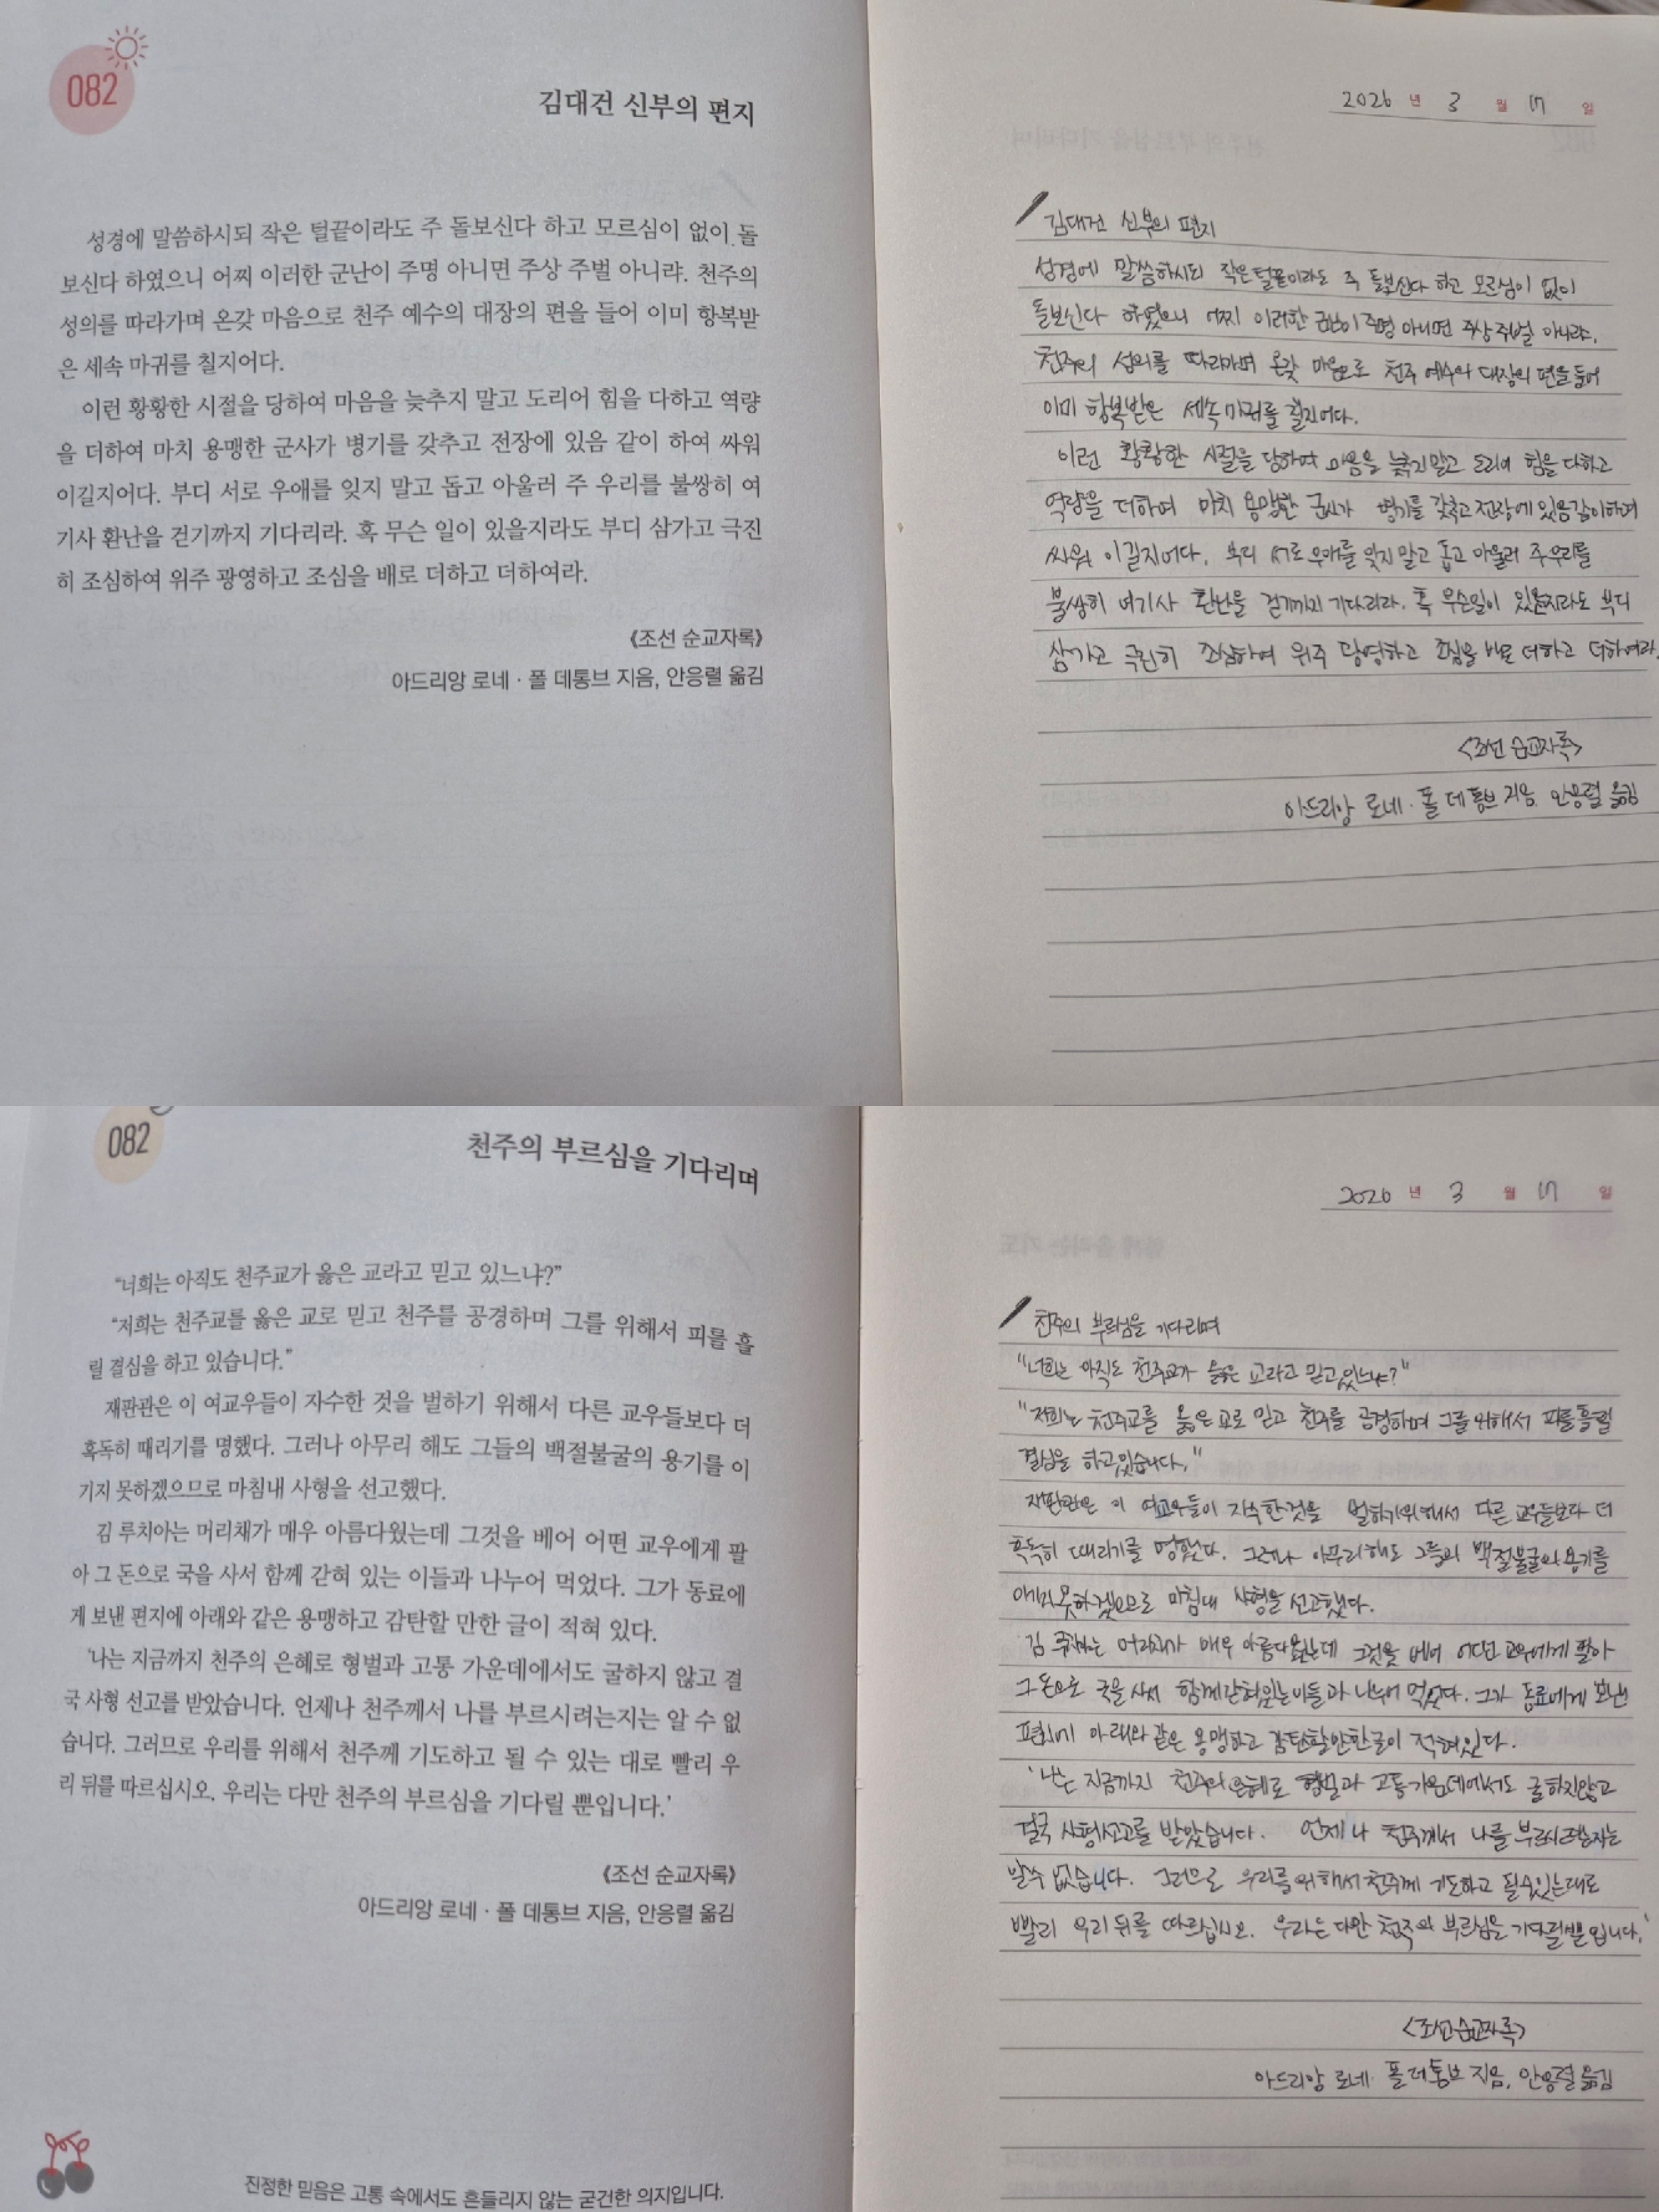 082
김대건 신부의 편지
성경에 말씀하시되 작은 털끝이라도 주 돌보신다 하고 모르심이 없이 돌
보신다 하였으니 어찌 이러한 군난이 주명 아니면 주상 주벌 아니랴. 천주의
성의를 따라가며 온갖 마음으로 천주 예수의 대장의 편을 들어 이미 항복받
은 세속 마귀를 칠지어다.
이런 황황한 시절을 당하여 마음을 늦추지 말고 도리어 힘을 다하고 역량
을 더하여 마치 용맹한 군사가 병기를 갖추고 전장에 있음 같이 하여 싸워
이길지어다. 부디 서로 우애를 잊지 말고 돕고 아울러 주 우리를 불쌍히 여
기사 환난을 걷기까지 기다리라. 혹 무슨 일이 있을지라도 부디 삼가고 극진
히 조심하여 위주 광영하고 조심을 배로 더하고 더하여라.
《조선 순교자록》
아드리앙 로네 · 폴 데통브 지음, 안응렬 옮김
2026 년 3 월 17 일
김대건 신부의 편지
성경에 말씀하시되 작은 털끝이라도 주 돌보신다 하고 모르심이 없이
돌보신다 하였으니 어찌 이러한 군난이 주명 아니면 주상 주벌 아니랴.
천주의 성의를 따라가며 온갖 마음으로 천주 예수의 대장의 편을 들어
이미 항복받은 세속 마귀를 칠지어다.
이런 황황한 시절을 당하여 마음을 늦추지 말고 도리어 힘을 다하고
역량을 더하여 마치 용맹한 군사가 병기를 갖추고 전장에 있음 같이 하여
싸워 이길지어다. 부디 서로 우애를 잊지 말고 돕고 아울러 주 우리를
불쌍히 여기사 환난을 걷기까지 기다리라. 혹 무슨일이 있을지라도 부디
삼가고 극진히 조심하여 위주 광영하고 조심을 배로 더하고 더하여라.
<조선 순교자록>
아드리앙 로네 · 폴 데통브 지음, 안응렬 옮김
082
천주의 부르심을 기다리며
“너희는 아직도 천주교가 옳은 교라고 믿고 있느냐?”
“저희는 천주교를 옳은 교로 믿고 천주를 공경하며 그를 위해서 피를 흘
릴 결심을 하고 있습니다.”
재판관은 이 여교우들이 자수한 것을 벌하기 위해서 다른 교우들보다 더
혹독히 때리기를 명했다. 그러나 아무리 해도 그들의 백절불굴의 용기를 이
기지 못하겠으므로 마침내 사형을 선고했다.
김 루치아는 머리채가 매우 아름다웠는데 그것을 베어 어떤 교우에게 팔
아 그 돈으로 국을 사서 함께 갇혀 있는 이들과 나누어 먹었다. 그가 동료에
게 보낸 편지에 아래와 같은 용맹하고 감탄할 만한 글이 적혀 있다.
‘나는 지금까지 천주의 은혜로 형벌과 고통 가운데에서도 굴하지 않고 결
국 사형 선고를 받았습니다. 언제나 천주께서 나를 부르시려는지는 알 수 없
습니다. 그러므로 우리를 위해서 천주께 기도하고 될 수 있는 대로 빨리 우
리 뒤를 따르십시오. 우리는 다만 천주의 부르심을 기다릴 뿐입니다.’
《조선 순교자록》
아드리앙 로네 · 폴 데통브 지음, 안응렬 옮김
진정한 믿음은 고통 속에서도 흔들리지 않는 굳건한 의지입니다.
2026 년 3 월 17 일
천주의 부르심을 기다리며
"너희는 아직도 천주교가 옳은 교라고 믿고 있느냐?"
"저희는 천주교를 옳은 교로 믿고 천주를 공경하며 그를 위해서 피를 흘릴
결심을 하고 있습니다."
재판관은 이 여교우들이 자수한것을 벌하기위해서 다른 교우들보다 더
혹독히 때리기를 명했다. 그러나 아무리 해도 그들의 백절불굴의 용기를
못하겠으므로 마침내 사형을 선고했다.
김 머리채가 매우 아름다웠는데 그것을 베어 어떤 교우에게 팔아
그 돈으로 국을 사서 함께 갇혀있는 이들과 나누어 먹었다. 그가 동료에게 보낸
편지에 아래와 같은 용맹하고 감탄할만한 글이 적혀있다.
'나는 지금까지 천주의 은혜로 형벌과 고통 가운데에서도 굴하지않고
결국 사형선고를 받았습니다. 언제나 천주께서 나를
알수 없습니다. 그러므로 우리를 위해서 천주께 기도하고 될수있는대로
빨리 우리 뒤를 따르십시오. 우리는 다만 천주의 부르심을 기다릴뿐입니다.'
<조선 순교자록>
아드리앙 로네· 폴 데통브 지음, 안응렬 옮김